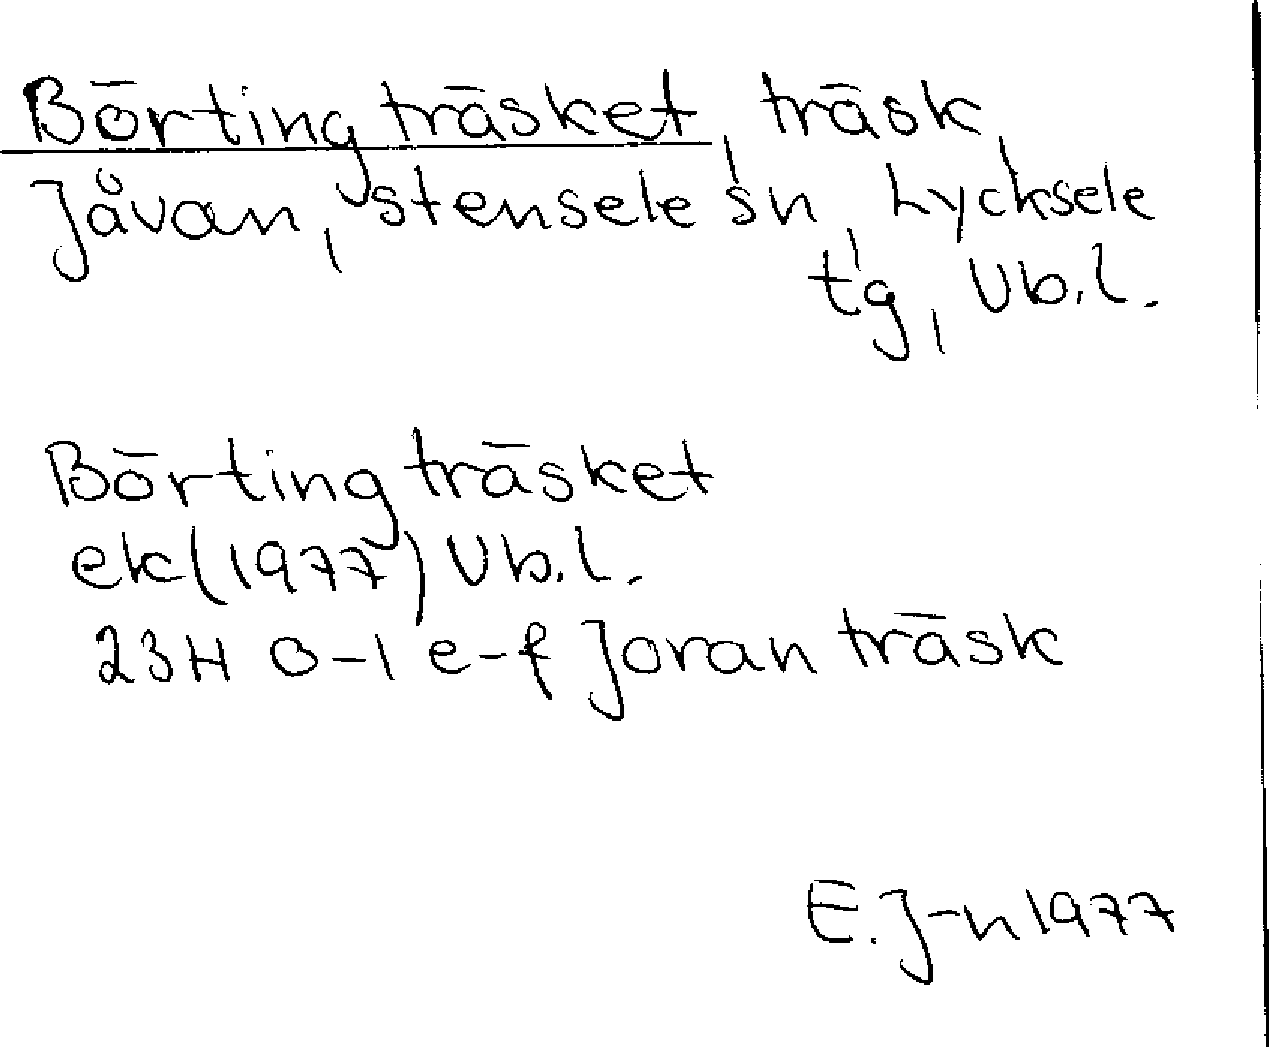 Börtingträsket, träsk,
Jåvan, Stensele sn, Lycksele
tg, Vb.l.
Börtingträsket
ek(1977) Vb.l.
23H 0-1 e-f Joranträsk
E.J-n 1977